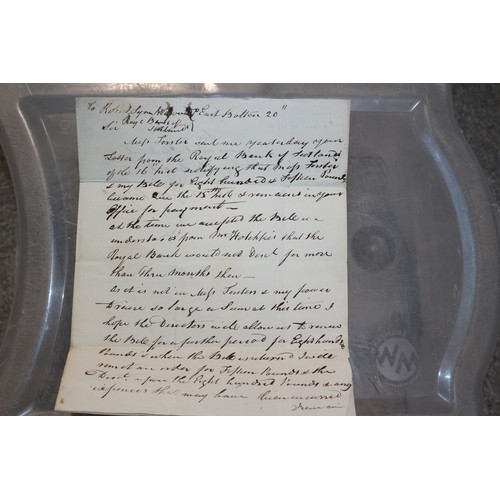 To Robt Syon East Bolton 20"
Sir Royl Bank of Scotland
Miss Forster sent me yesterday your
Letter from the Royal Bank of Scotland
of the 16 Inst notifying that Miss Forster
& my Bill for Eight hundred & Fifteen Pounds
became due the 15th Inst & remains in your
Office for payment—
at the time we accepted the Bill we
understood from Mr Hotchkis that the
Royal Bank would not Disct for more
than three months then—
as it is not in Miss Forsters & my power
to raise so large a Sum at this time I
hope the Directors will allow us to renew
the Bill for a further period for Eight hundd
Pounds & when the Bill is returned I will
remit an order for Fifteen Pounds & the
Disct upon the Eight hundred Pounds & any
expences the may have been incurred
I remain
WN